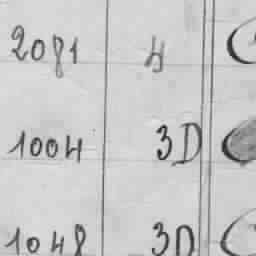 2081 4
1004 3D
1048 3D